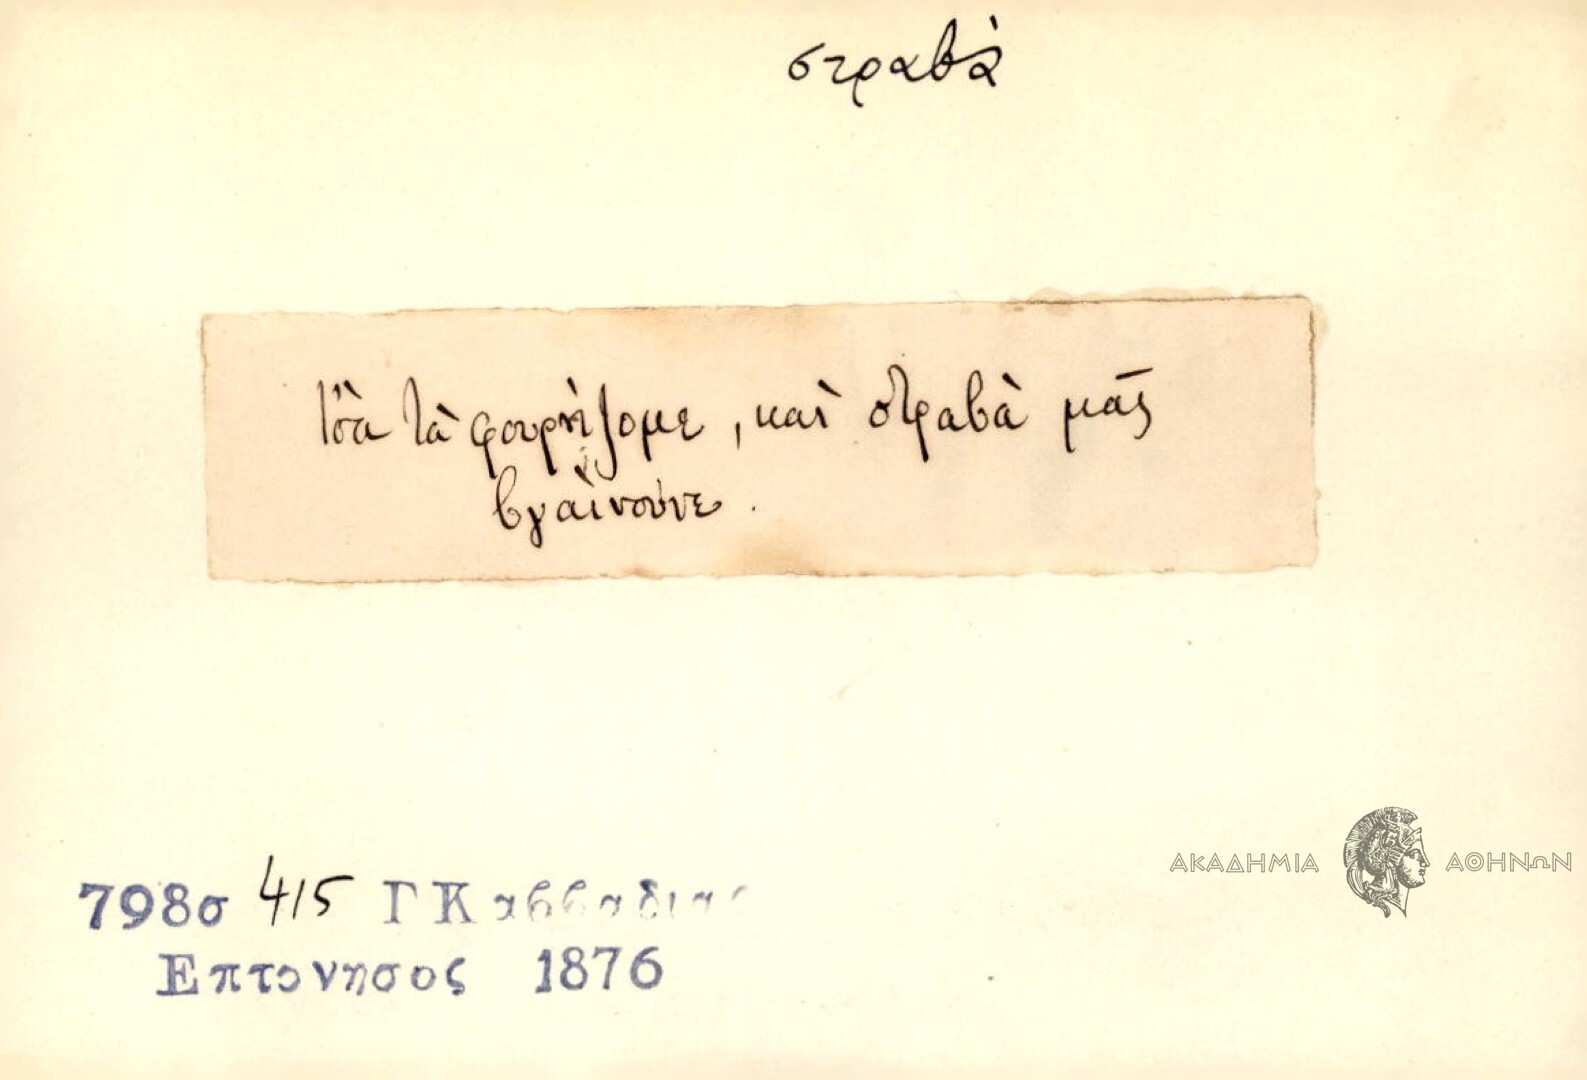 στραβὰ
Ἴσα τὰ φουρνίζομε, καὶ στραβὰ μᾶς
βγαίνουνε.
798σ 415 Γ Καββαδιας
Επτονησος 1876
ΑΚΑΔΗΜΙΑ ΑΘΗΝΩΝ